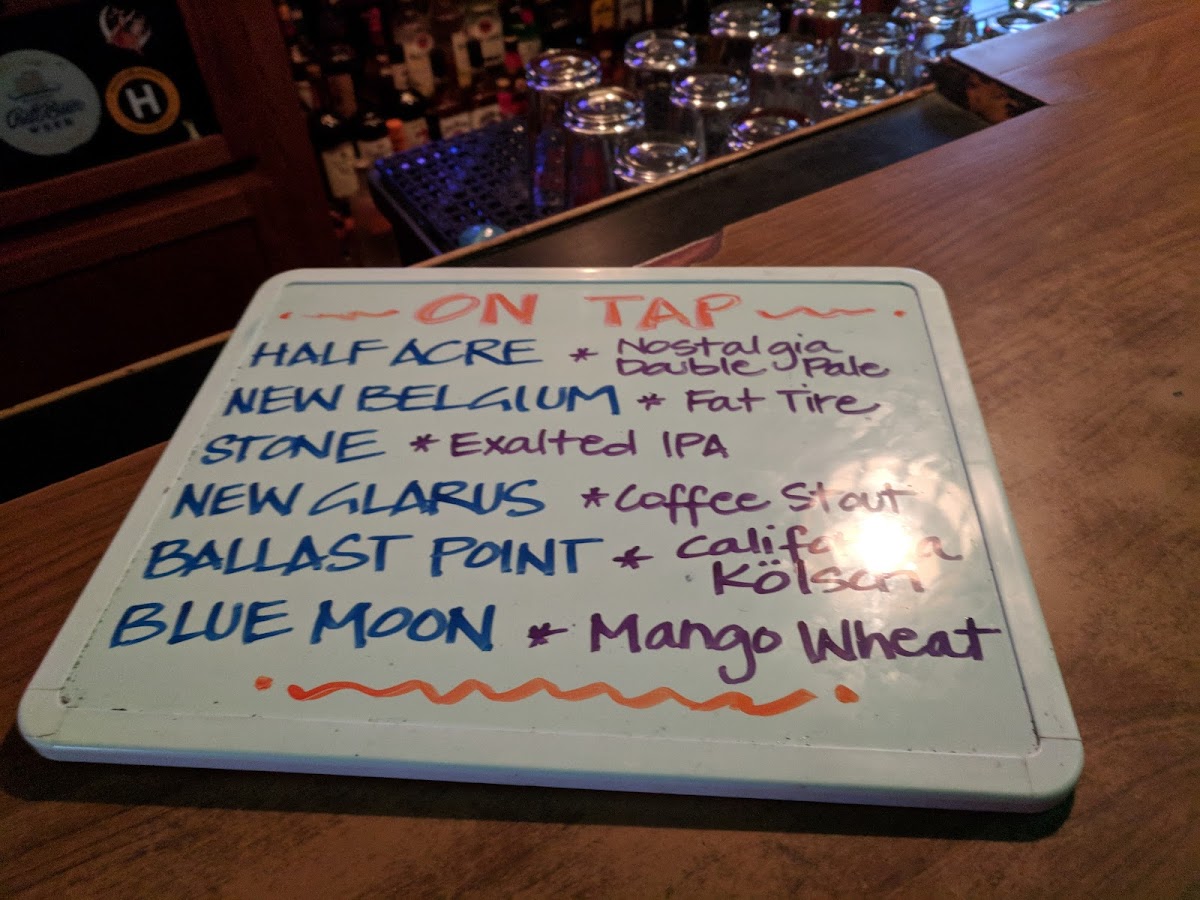 ON TAP
HALF ACRE * Nostalgia
Double Pale
NEW BELGIUM * Fat Tire
STONE * Exalted IPA
NEW GLARUS * Coffee Stout
BALLAST POINT * California
Kölsch
BLUE MOON * Mango Wheat
H